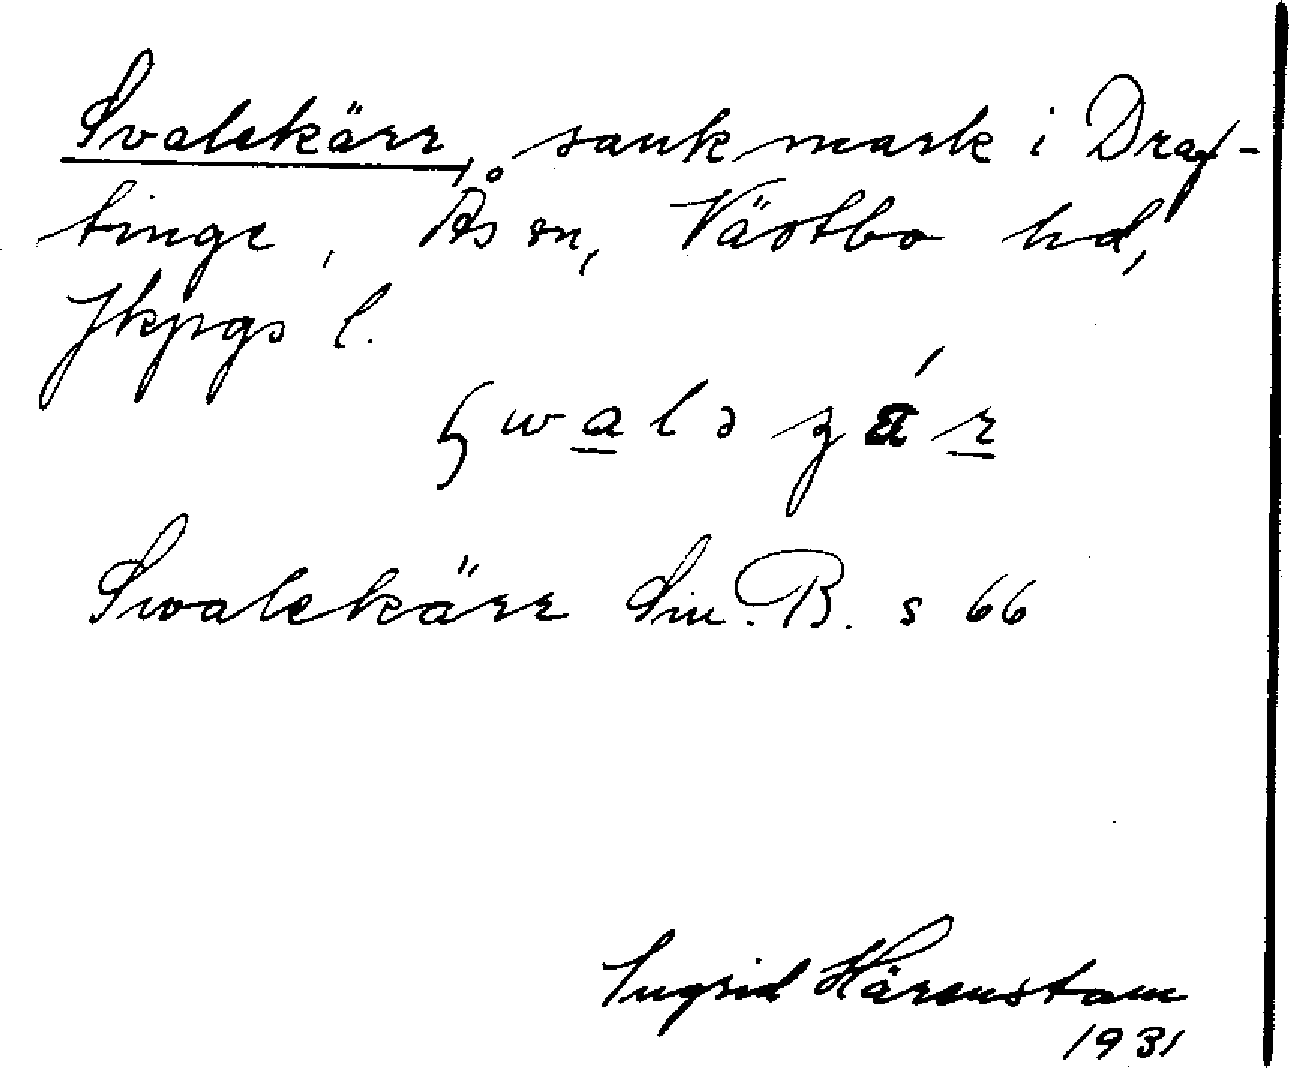 Svalekärr, sankmark i Draf-
tinge, Ås sn, Västbo hd,
Jkpgs l.
Swalekärr Lm. B. s 66
Ingrid Härenstam
1931